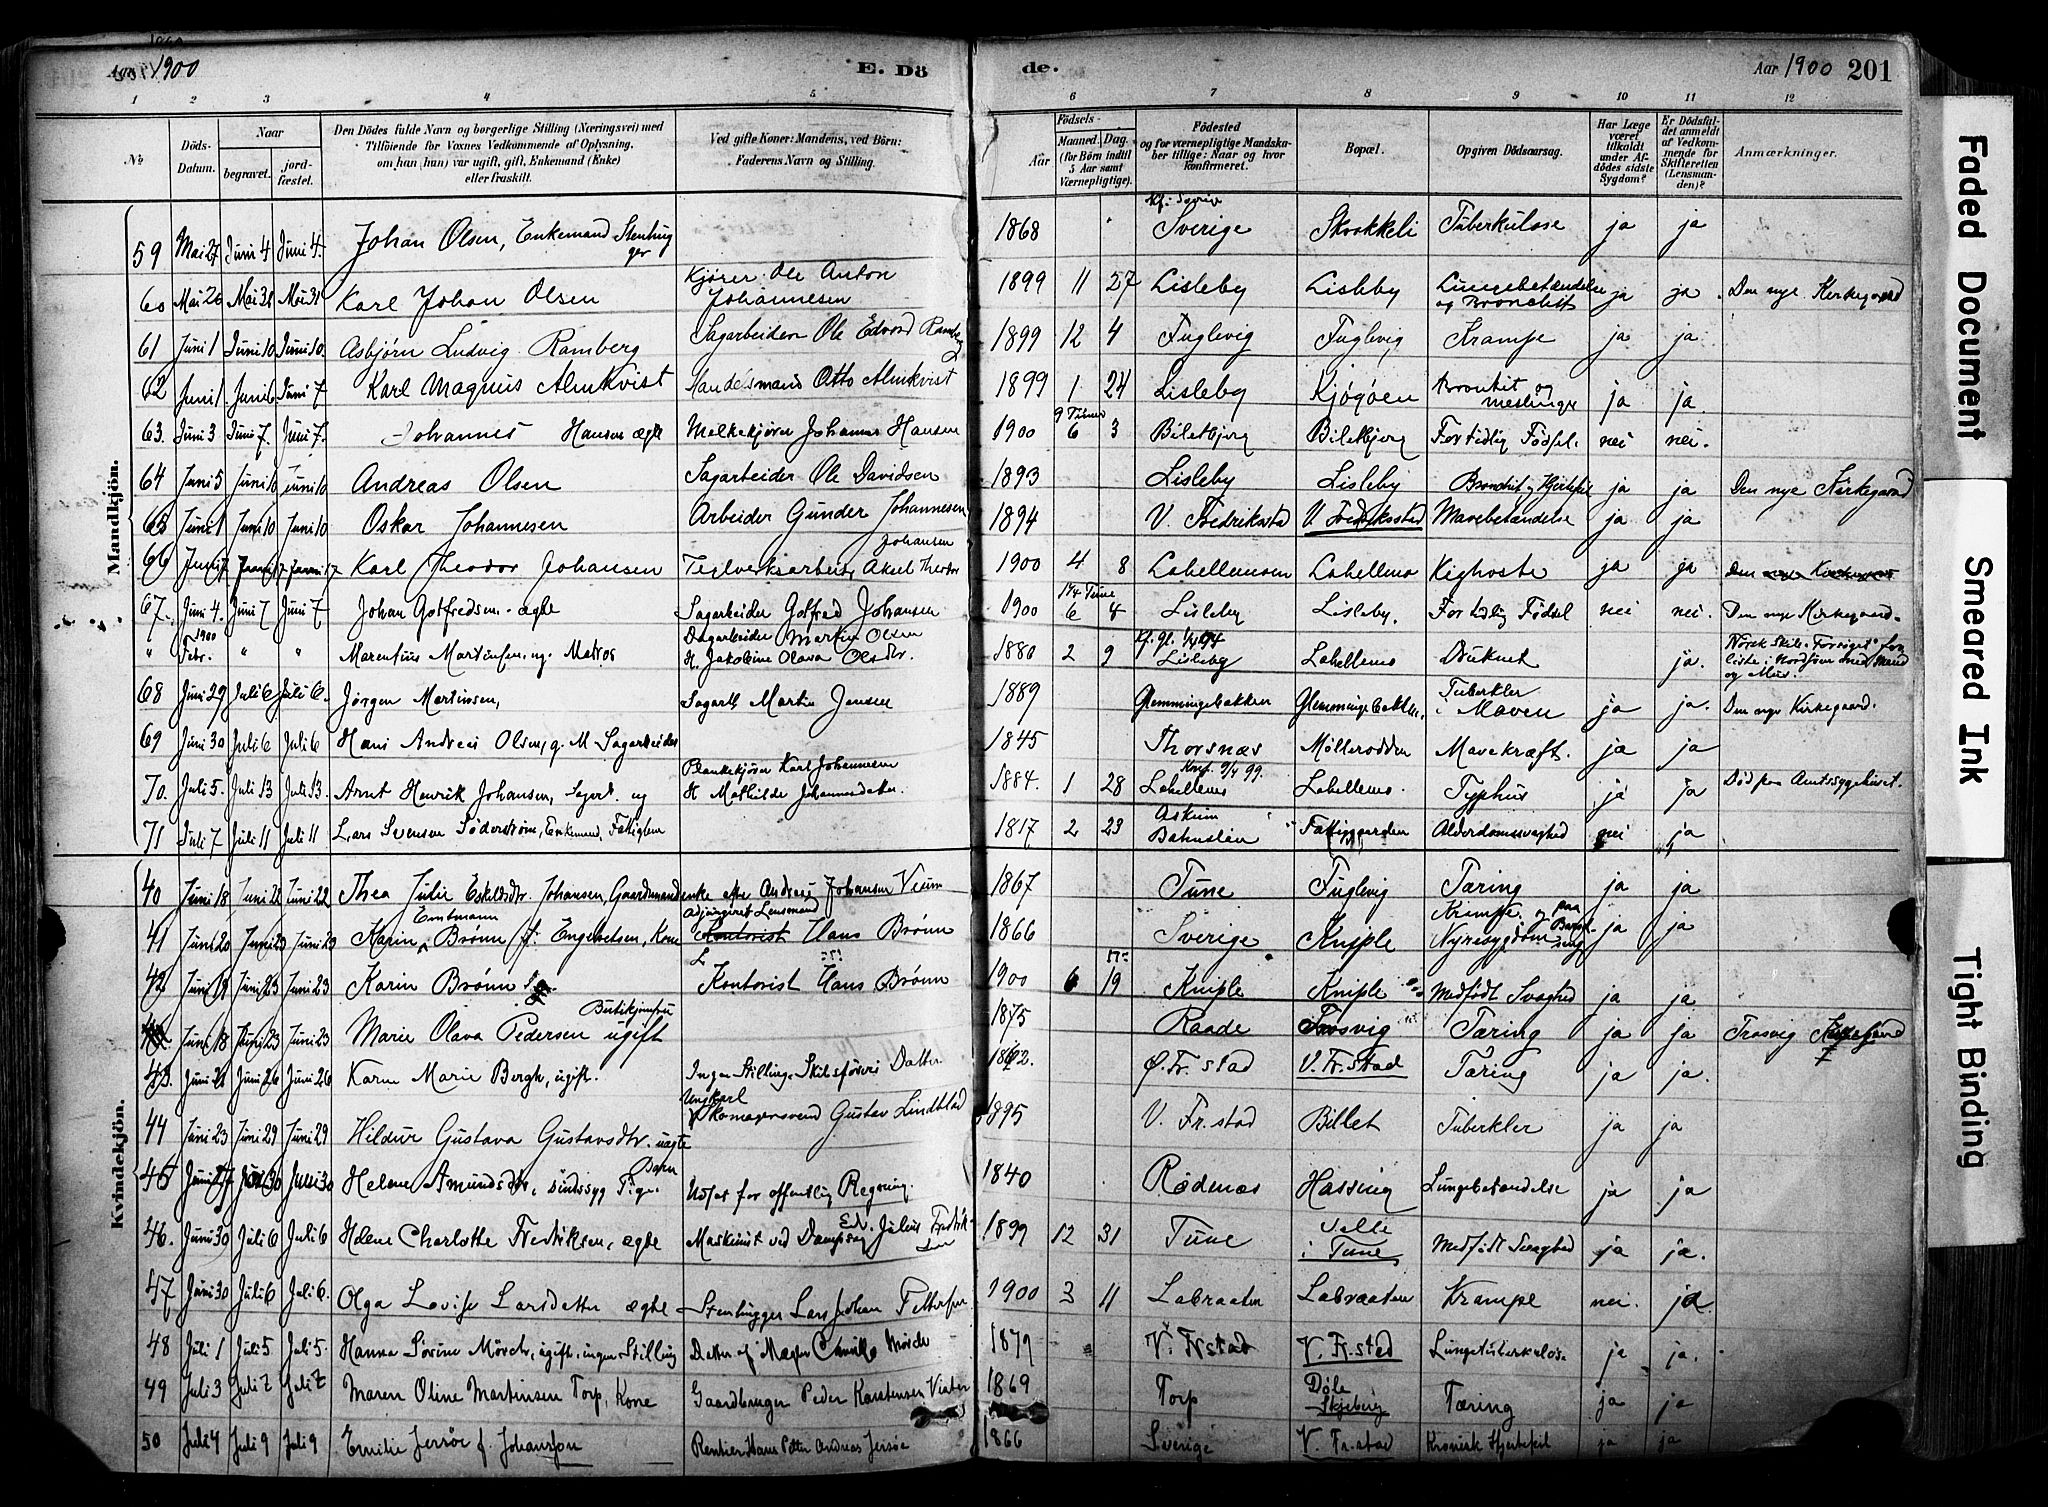 Aar 1900
E. Dö
de.
Aar 1900 201
1 2 3 4 5 6 7 8 9 10 11 12
No
Döds-Datum.
Naar
begravet.
jordfæstet.
Den Dödes fulde Navn og borgerlige Stilling (Næringsvei) med
Tilföiende for Voxnes Vedkommende af Oplysning,
om han (hun) var ugift, gift, Enkemand (Enke)
eller fraskilt.
Ved gifte Koner: Mandens, ved Börn:
Faderens Navn og Stilling.
Aar
Födsels-
Maaned. Dag.
(for Börn indtil
5 Aar samt
Værnepligtige).
Födested
og for værnepligtige Mandskaber tillige: Naar og hvor
konfirmeret.
Bopæl.
Opgiven Dödsaarsag.
Har Læge
været
tilkaldt
under Afdödes sidste
Sygdom?
Er Dödsfaldet anmeldt
af Vedkommende for
Skifteretten
(Lensmanden)?
Anmærkninger.
Mandkjön.
59 Mai 27 Juni 4 Juni 4. Johan Olsen, Enkemand Stenhugger 1868 Sverige Tuberkulose ja ja
60 Mai 26 Mai 31 Mai 31 Karl Johan Olsen Kjører Ole Anton Johannesen 1899 11 27 Lisleby Lisleby Lungebetændelse og Bronchit ja ja Den nye Kirkegaard
61 Juni 1 Juni 10 Juni 10. Asbjørn Ludvig Ramberg Sagarbeider Ole Edvard Ramberg 1899 12 4 Fuglevig Fuglevig Krampe ja ja
62 Juni 1. Juni 6 Juni 7 Karl Magnus Almkvist Handelsmand Otto Almkvist 1899 1 24 Lisleby Kjøgøen Bronkit og meslinger ja ja.
63. Juni 3 Juni 7. Juni 7. Johannes Hansen ægte Melkekjører Johannes Hansen 1900 9 Timer 6 3 Biletbjerg Biletbjerg For tidlig Födsel. nei nei.
64 Juni 5 Juni 10 Juni 10 Andreas Olsen Sagarbeider Ole Davidsen 1893 Lisleby Lisleby Bronchit og Hjertefeil ja ja Den nye Kirkegaard
65 Juni 1 Juni 10 Juni 10 Oskar Johannesen Arbeider Gunder Johannesen 1894 V. Fredriksstad V. Fredriksstad Mavebetændelse ja ja
66 Juni 7 Karl Theodor Johansen Teglverksarbeider Aksel Theodor Johansen 1900 4 8 Labellemoen Labellemo Kighoste ja ja Den nye Kirkegaard
67. Juni 4. Juni 7 Juni 7 Johan Gotfredsen - ægte Sagarbeider Gotfred Johansen 1900 1¼ Time 6 4 Lisleby Lisleby. For tidlig Födsel nei nei. Den nye Kirkegaard.
" 1900 Febr. " " Marentius Martinsen, ug. Matros Dagarbeider Martin Olsen H. Jakobine Olava Olsdtr. 1880 2 9 Lisleby Labellemo Druknet ja. Norsk Skib "Forsøget" forliste i Nordsjøen med Mand og Mus.
68 Juni 29 Juli 6 Juli 6. Jørgen Martinsen, Sagarb. Martin Jensen 1889 Glemmingebakken Glemmingebakken. Tuberkler i Maven ja ja. Den nye Kirkegaard.
69 Juni 30 Juli 6 Juli 6 Hans Andreas Olsen, g. M. Sagarbeider 1845 Thorsnæs Mølleroden Mavekræft. ja ja
70. Juli 5. Juli 13 Juli 13. Arnt Henrik Johansen, Sagarb. ug Plankekjører Karl Johannesen H Mathilde Johannesdatter. 1884. 1 28 Labellemo Konf. 9/4 99. Labellemo. Typhus ja ja Död paa Amtssygehuset.
71 Juli 7 Juli 11 Juli 11 Lars Svensen Söderstrøm, Enkemand, Fattiglem 1817 2 23 Askim Fattiggaarden Alderdomssvaghed nei ja
Kvindekjön.
40 Juni 18 Juni 22 Juni 22 Thea Julie Eskildsdtr Johansen, Gaardmandsenke efter Andreas Johansen Veum 1867 Tune Fuglevig Tæring ja ja
41 Juni 20 Juni 23 Juni 23 Karin Emtmann Brønn f. Engebretsen, Kone adjungeret Lensmand Kontorist Hans Brønn 1866 Sverige Kniple Krampe og Nyresygdom paa Barselseng ja ja
42 Juni 19 Juni 23 Juni 23 Karin Brønn Kontorist Hans Brønn 1900 6 19 Kniple Kniple Medfödt Svaghed ja ja
Juni 18 Juni 23 Juni 23 Marie Olava Pedersen ugift Butikjomfru 1875 Raade Trosvig Tæring ja ja Trosvig Kirkegaard
43. Juni 21 Juni 26 Juni 26 Karen Marie Bergh, ugift. Ingen Stilling. Skibsførers Datter Ø. Fr. stad V. Fr. stad Tæring ja ja.
44 Juni 23 Juni 29 Juni 29 Hildur Gustava Gustavsdtr. uægte Barn Ungkarl Skomagersvend Gustav Lindblad 1895 V. Fr. stad Billet Tuberkler ja ja
45 Juni 27 Juni 30 Juni 30 Helene Amundsdtr, sindssyg Pige. Udsat for offentlig Regning. 1840 Rødenæs Hassing Lungebetændelse ja ja
46. Juni 30 Juli 6 Juli 6 Helene Charlotte Fredriksen, ægte Maskinist ved Dampsag Edv. Julius Fredriksen 1899 12 31 Tune i Tune Medfödt Svaghed ja ja.
47 Juni 30 Juli 6 Juli 6. Olga Lovise Larsdatter ægte Stenhugger Lars Johan Pettersen 1900 3 11 Labraaten Labraaten Krampe nei. ja.
48 Juli 1 Juli 5 Juli 5. Hanna Sörine Mörch, ugift, ingen Stilling Datter af Mörch 1879 V. Frstad V. Fr. stad Lungetuberkulose ja ja.
49 Juli 3 Juli 7 Juli 7 Maren Oline Martinsen Torp, Kone Gaardbruger Peder Karstensen 1869 Torp Døle Skjeberg Tæring ja ja
50 Juli 4 Juli 9 Juli 9 Emilie Jersøe f. Johansson Rentier Hans Petter Andreas Jersøe 1866 Sverige V. Fr. stad Kronisk Hjertefeil ja ja
Faded Document
Smeared Ink
Tight Binding